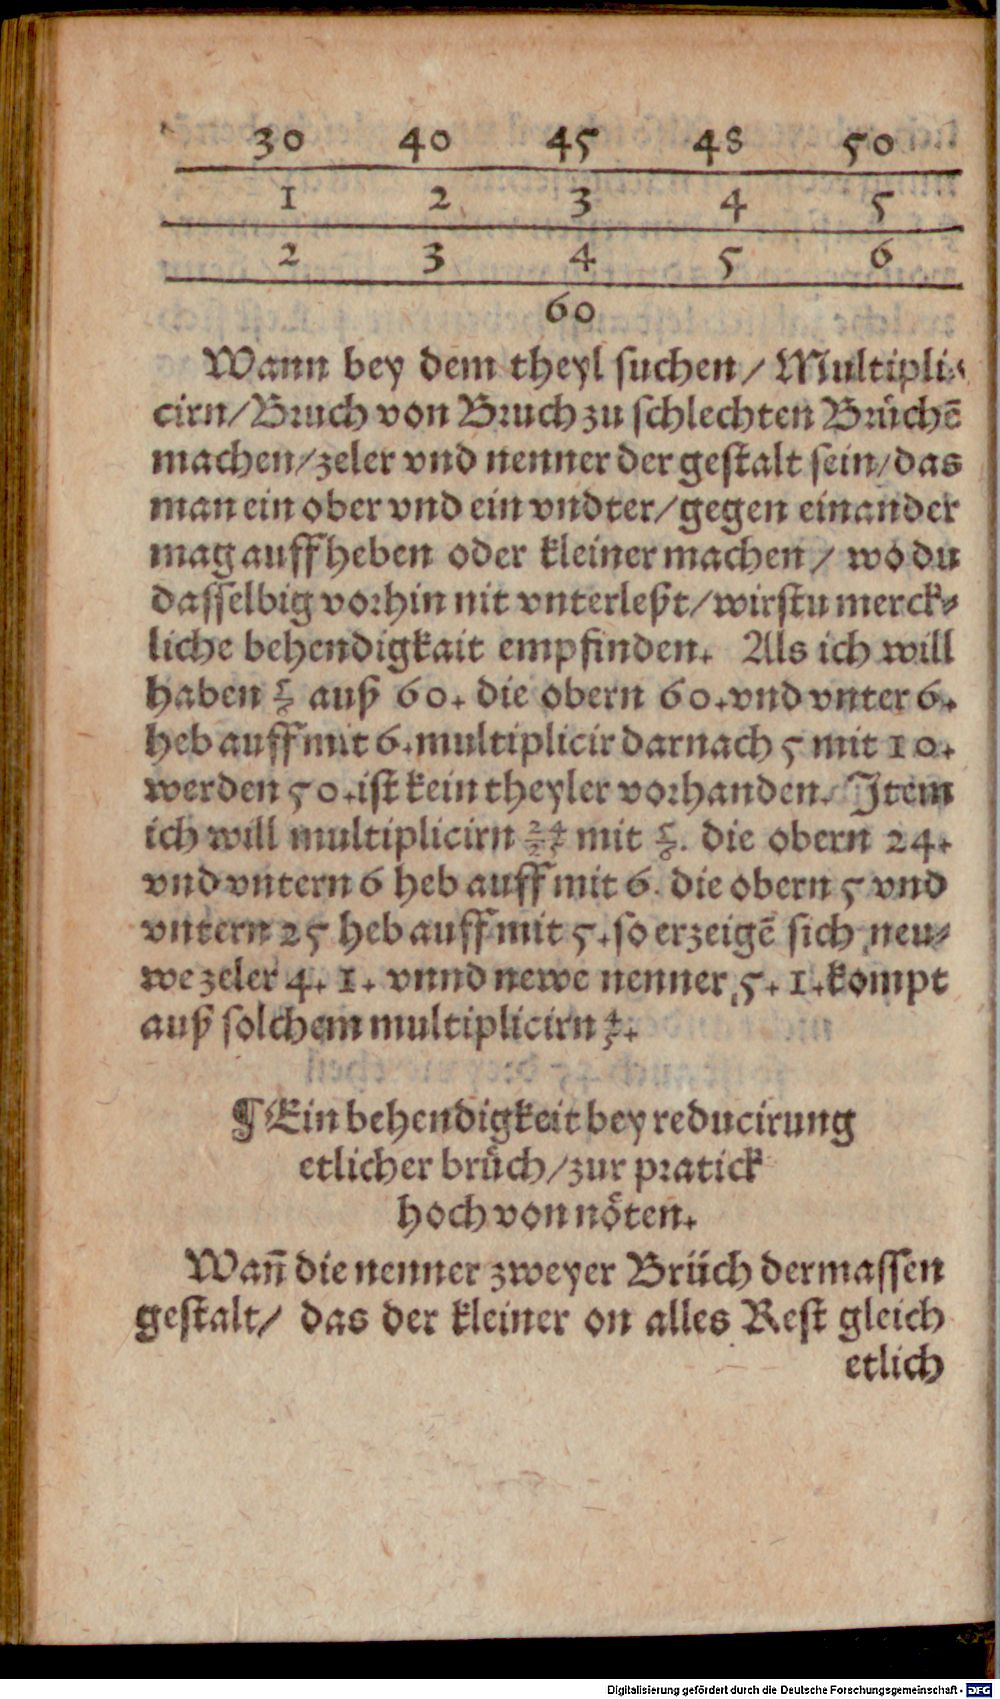 30 40 45 48 50
1 2 3 4 5
2 3 4 5 6
60
Wann bey dem theyl suchen / Multipli-
cirn / Bruch von Bruch zu schlechten Brüchē
machen / zeler vnd nenner der gestalt sein / das
man ein ober vnd ein vndter / gegen einander
mag auff heben oder kleiner machen / wo du
dasselbig vorhin nit vnterleßt / wirstu merck-
liche behendigkait empfinden. Als ich will
haben 5/6 auß 60. die obern 60. vnd vnter 6.
heb auff mit 6. multiplicir darnach 5 mit 10.
werden 50. ist kein theyler vorhanden. Item
ich will multiplicirn 24/25 mit 5/6. die obern 24.
vnd vntern 6 heb auff mit 6. die obern 5 vnd
vntern 25 heb auff mit 5. so erzeigē sich neu-
we zeler 4. 1. vnnd newe nenner 5. 1. kompt
auß solchem multiplicirn 4/5.
¶ Ein behendigkeit bey reducirung
etlicher brüch / zur pratick
hoch von nöten.
Wañ die nenner zweyer Brüch dermassen
gestalt / das der kleiner on alles Rest gleich
etlich
Digitalisierung gefördert durch die Deutsche Forschungsgemeinschaft - DFG